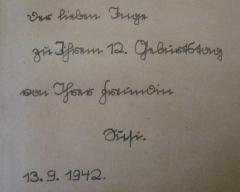 Der lieben Inge
zu Ihrem 12. Geburtstag
von Ihrer Freundin
Susi.
13.9.1942.